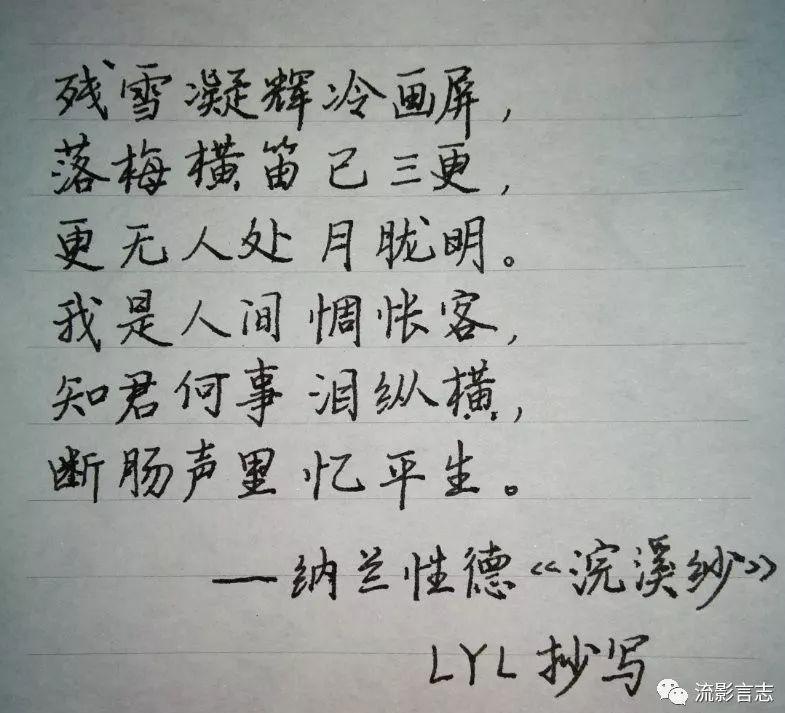 残雪凝辉冷画屏,
落梅横笛已三更,
更无人处月胧明。
我是人间惆怅客,
知君何事泪纵横,
断肠声里忆平生。
——纳兰性德《浣溪纱》
LYL 抄写
流影言志